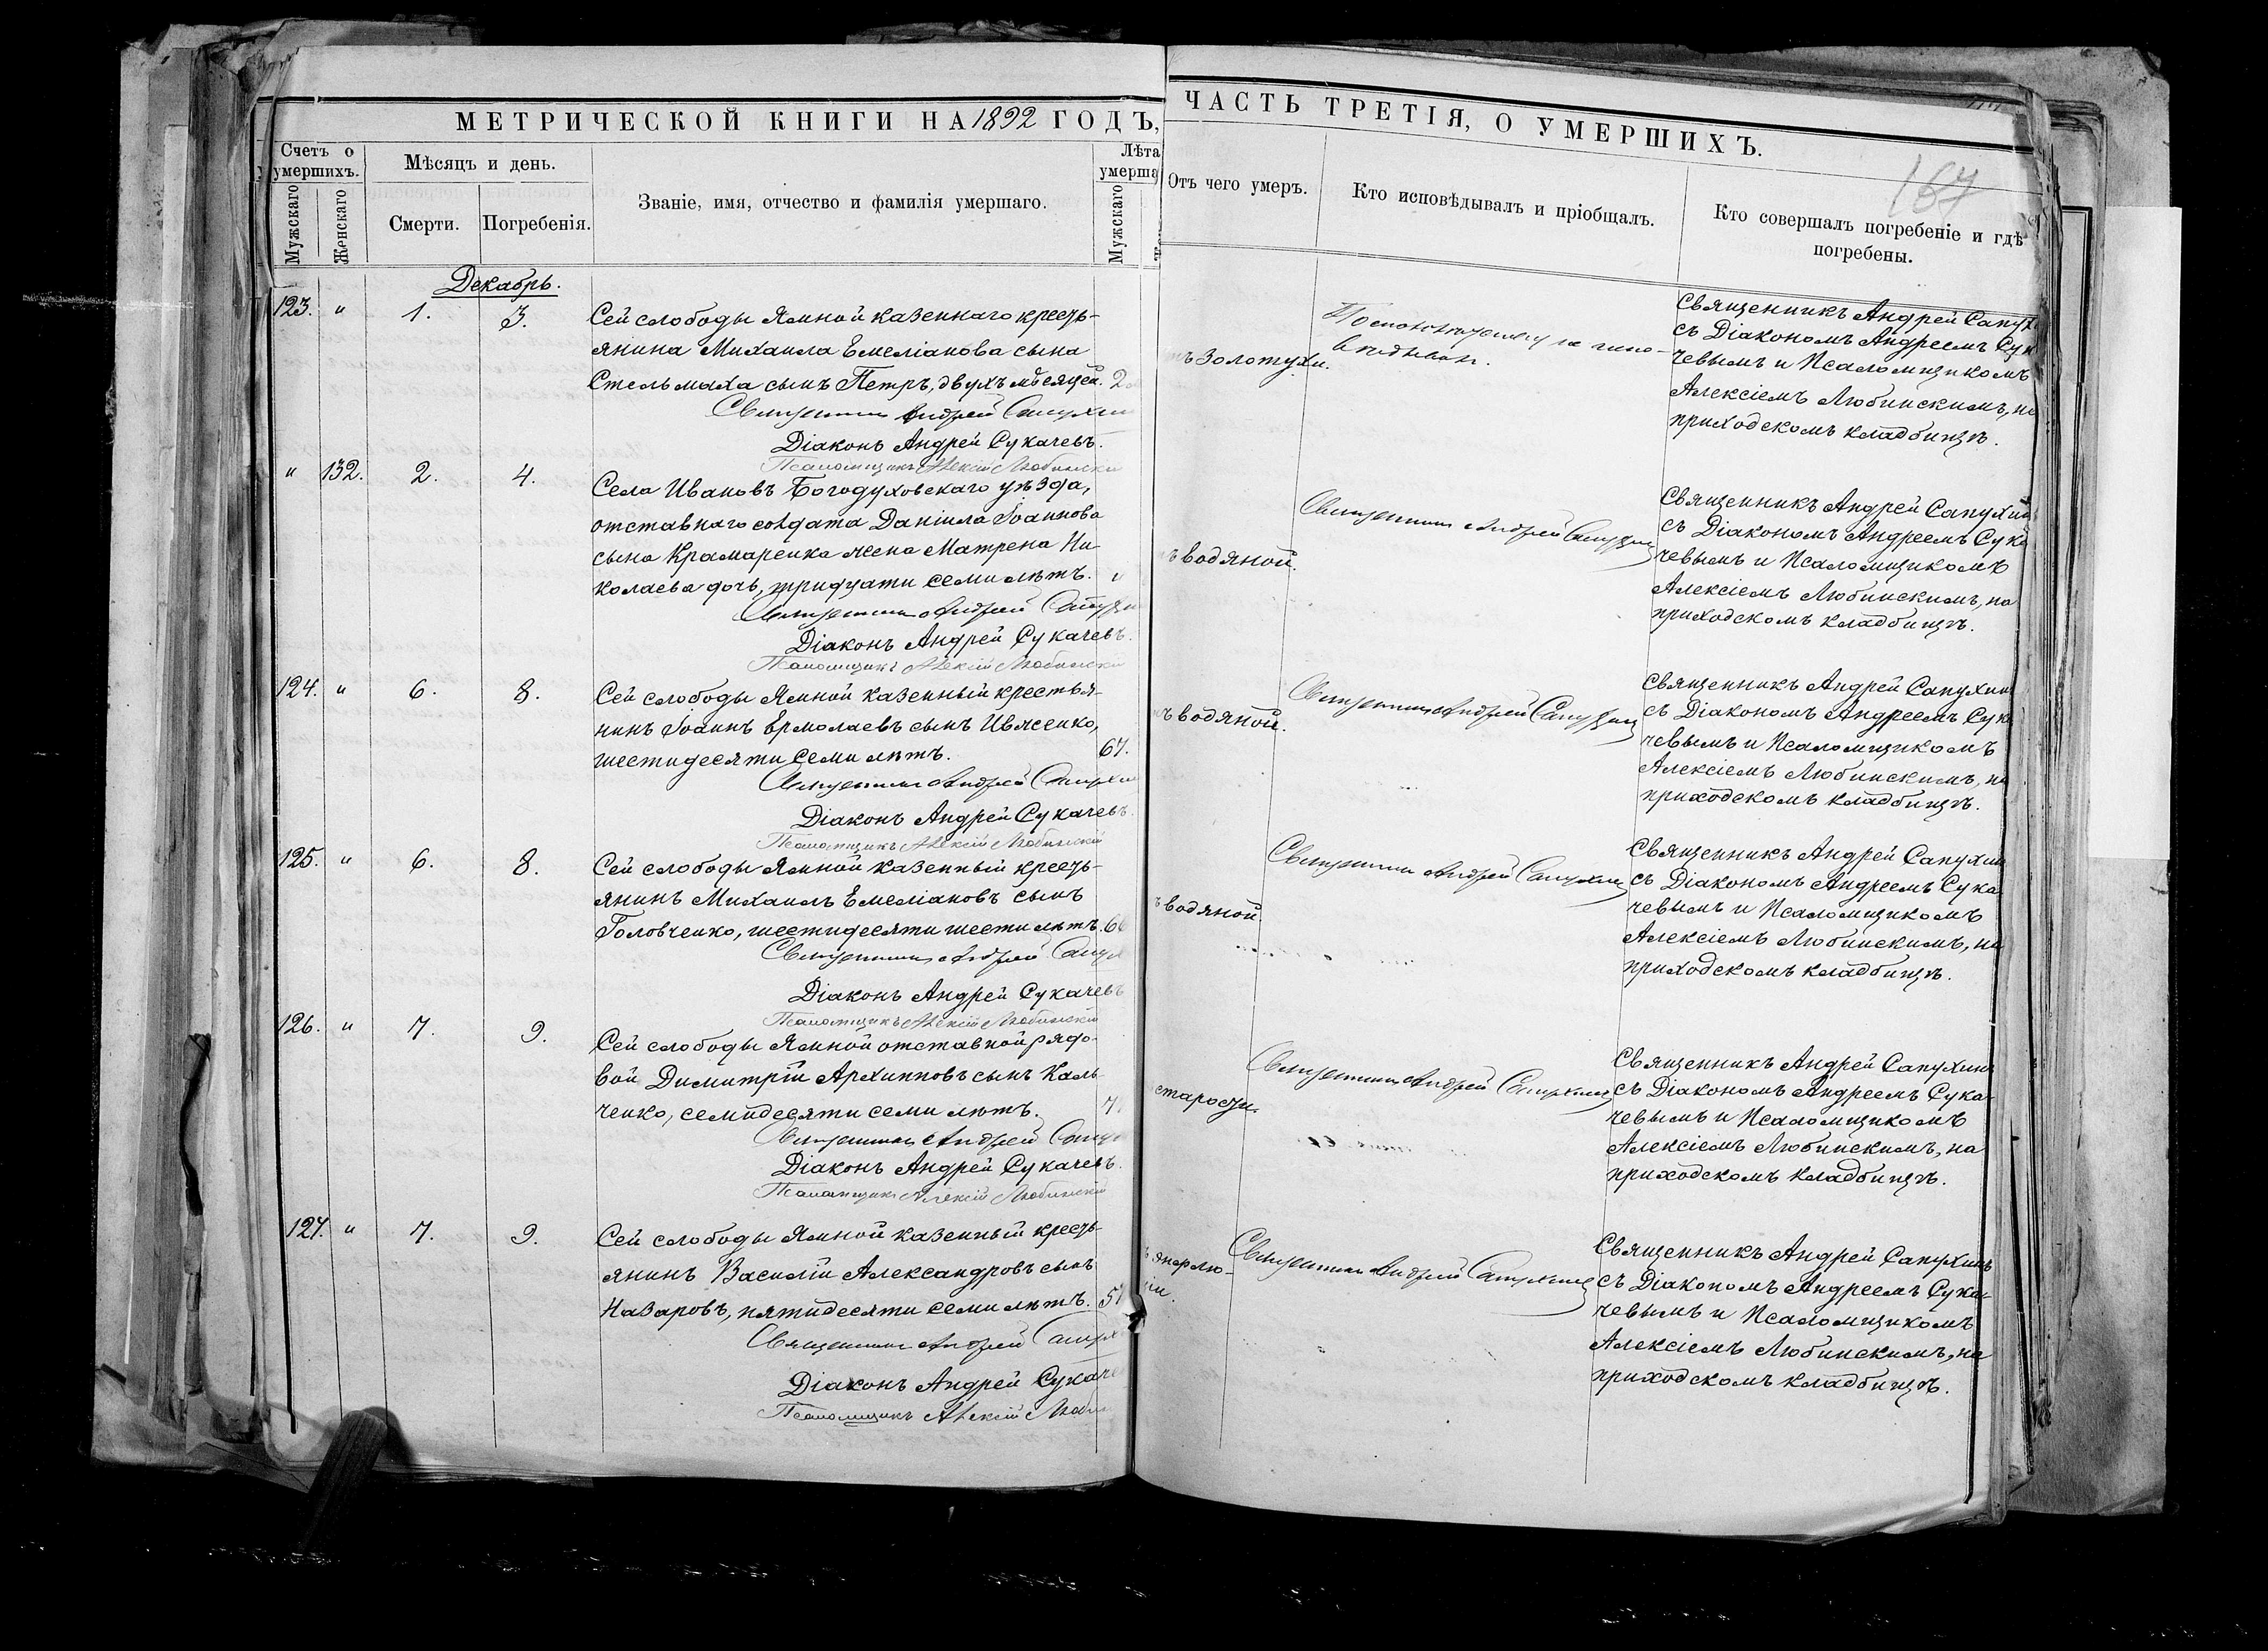 МЕТРИЧЕСКОЙ КНИГИ НА 1892 ГОДЪ,
Счетъ о умершихъ.
Мужскаго
Женскаго
Мѣсяцъ и день.
Смерти.
Погребенія.
Званіе, имя, отчество и фамилія умершаго.
Лѣта
умерша
Мужскаго
Декабрь.
123. " 1. 3.
Сей слободы Ямной казеннаго кресть-
янина Михаила Емеліанова сына
Стельмаха сынъ Петръ, двухъ мѣсяцей. 2
Священникъ Андрей Сапухин
Діаконъ Андрей Сукачевъ.
Псаломщикъ Алексій Любински
" 132. 2. 4.
Села Ивановъ Богодуховскаго уѣзда,
отставнаго солдата Даніила Іоаннова
сына Крамаренка жена Матрена Ни-
колаева дочь, тридцати семи лѣтъ. "
Священникъ Андрей Сапухи
Діаконъ Андрей Сукачевъ.
Псаломщикъ Алексій Любински
124. " 6. 8.
Сей слободы Ямной казенный крестья-
нинъ Іоаннъ Ермолаевъ сынъ Ивженко,
шестидесяти семи лѣтъ. 67.
Священникъ Андрей Сапухин
Діаконъ Андрей Сукачевъ.
Псаломщикъ Алексій Любинскій
125. " 6. 8.
Сей слободы Ямной казенный кресть-
янинъ Михаилъ Емеліановъ сынъ
Головченко, шестидесяти шести лѣтъ. 66
Священникъ Андрей Сапух
Діаконъ Андрей Сукачевъ
Псаломщикъ Алексій Любинскій
126. " 7. 9.
Сей слободы Ямной отставной рядо-
вой Димитрій Архипповъ сынъ Каль-
ченко, семидесяти семи лѣтъ. 7
Священникъ Андрей Сапух
Діаконъ Андрей Сукачевъ.
Псаломщикъ Алексій Любинскій
127. " 7. 9.
Сей слободы Ямной казенный кресть-
янинъ Василій Александровъ сынъ
Назаровъ, пятидесяти семи лѣтъ. 57
Священникъ Андрей Сапух
Діаконъ Андрей Сукаче
Псаломщикъ Алексій Люби
ЧАСТЬ ТРЕТІЯ, О УМЕРШИХЪ.
167
Отъ чего умеръ.
Кто исповѣдывалъ и пріобщалъ.
Кто совершалъ погребеніе и гдѣ
погребены.
тъ золотухи.
Священникъ Андрей Сапух
съ Діакономъ Андреемъ Сук
чевымъ и Псаломщикомъ
Алексіемъ Любинскимъ, на
приходскомъ кладбищѣ.
ъ водяной.
Священникъ Андрей Сапухин
Священникъ Андрей Сапухин
съ Діакономъ Андреемъ Сука
чевымъ и Псаломщикомъ
Алексіемъ Любинскимъ, на
приходскомъ кладбищѣ.
ъ водяной.
Священникъ Андрей Сапухин
Священникъ Андрей Сапухин
съ Діакономъ Андреемъ Сук
чевымъ и Псаломщикомъ
Алексіемъ Любинскимъ, на
приходскомъ кладбищѣ.
ъ водяной.
Священникъ Андрей Сапухин
Священникъ Андрей Сапухин
съ Діакономъ Андреемъ Сука
чевымъ и Псаломщикомъ
Алексіемъ Любинскимъ, на
приходскомъ кладбищѣ.
старости.
Священникъ Андрей Сапухин
Священникъ Андрей Сапухинъ
съ Діакономъ Андреемъ Сука-
чевымъ и Псаломщикомъ
Алексіемъ Любинскимъ, на
приходскомъ кладбищѣ.
Священникъ Андрей Сапухин
Священникъ Андрей Сапухинъ
съ Діакономъ Андреемъ Сука-
чевымъ и Псаломщикомъ
Алексіемъ Любинскимъ, на
приходскомъ кладбищѣ.